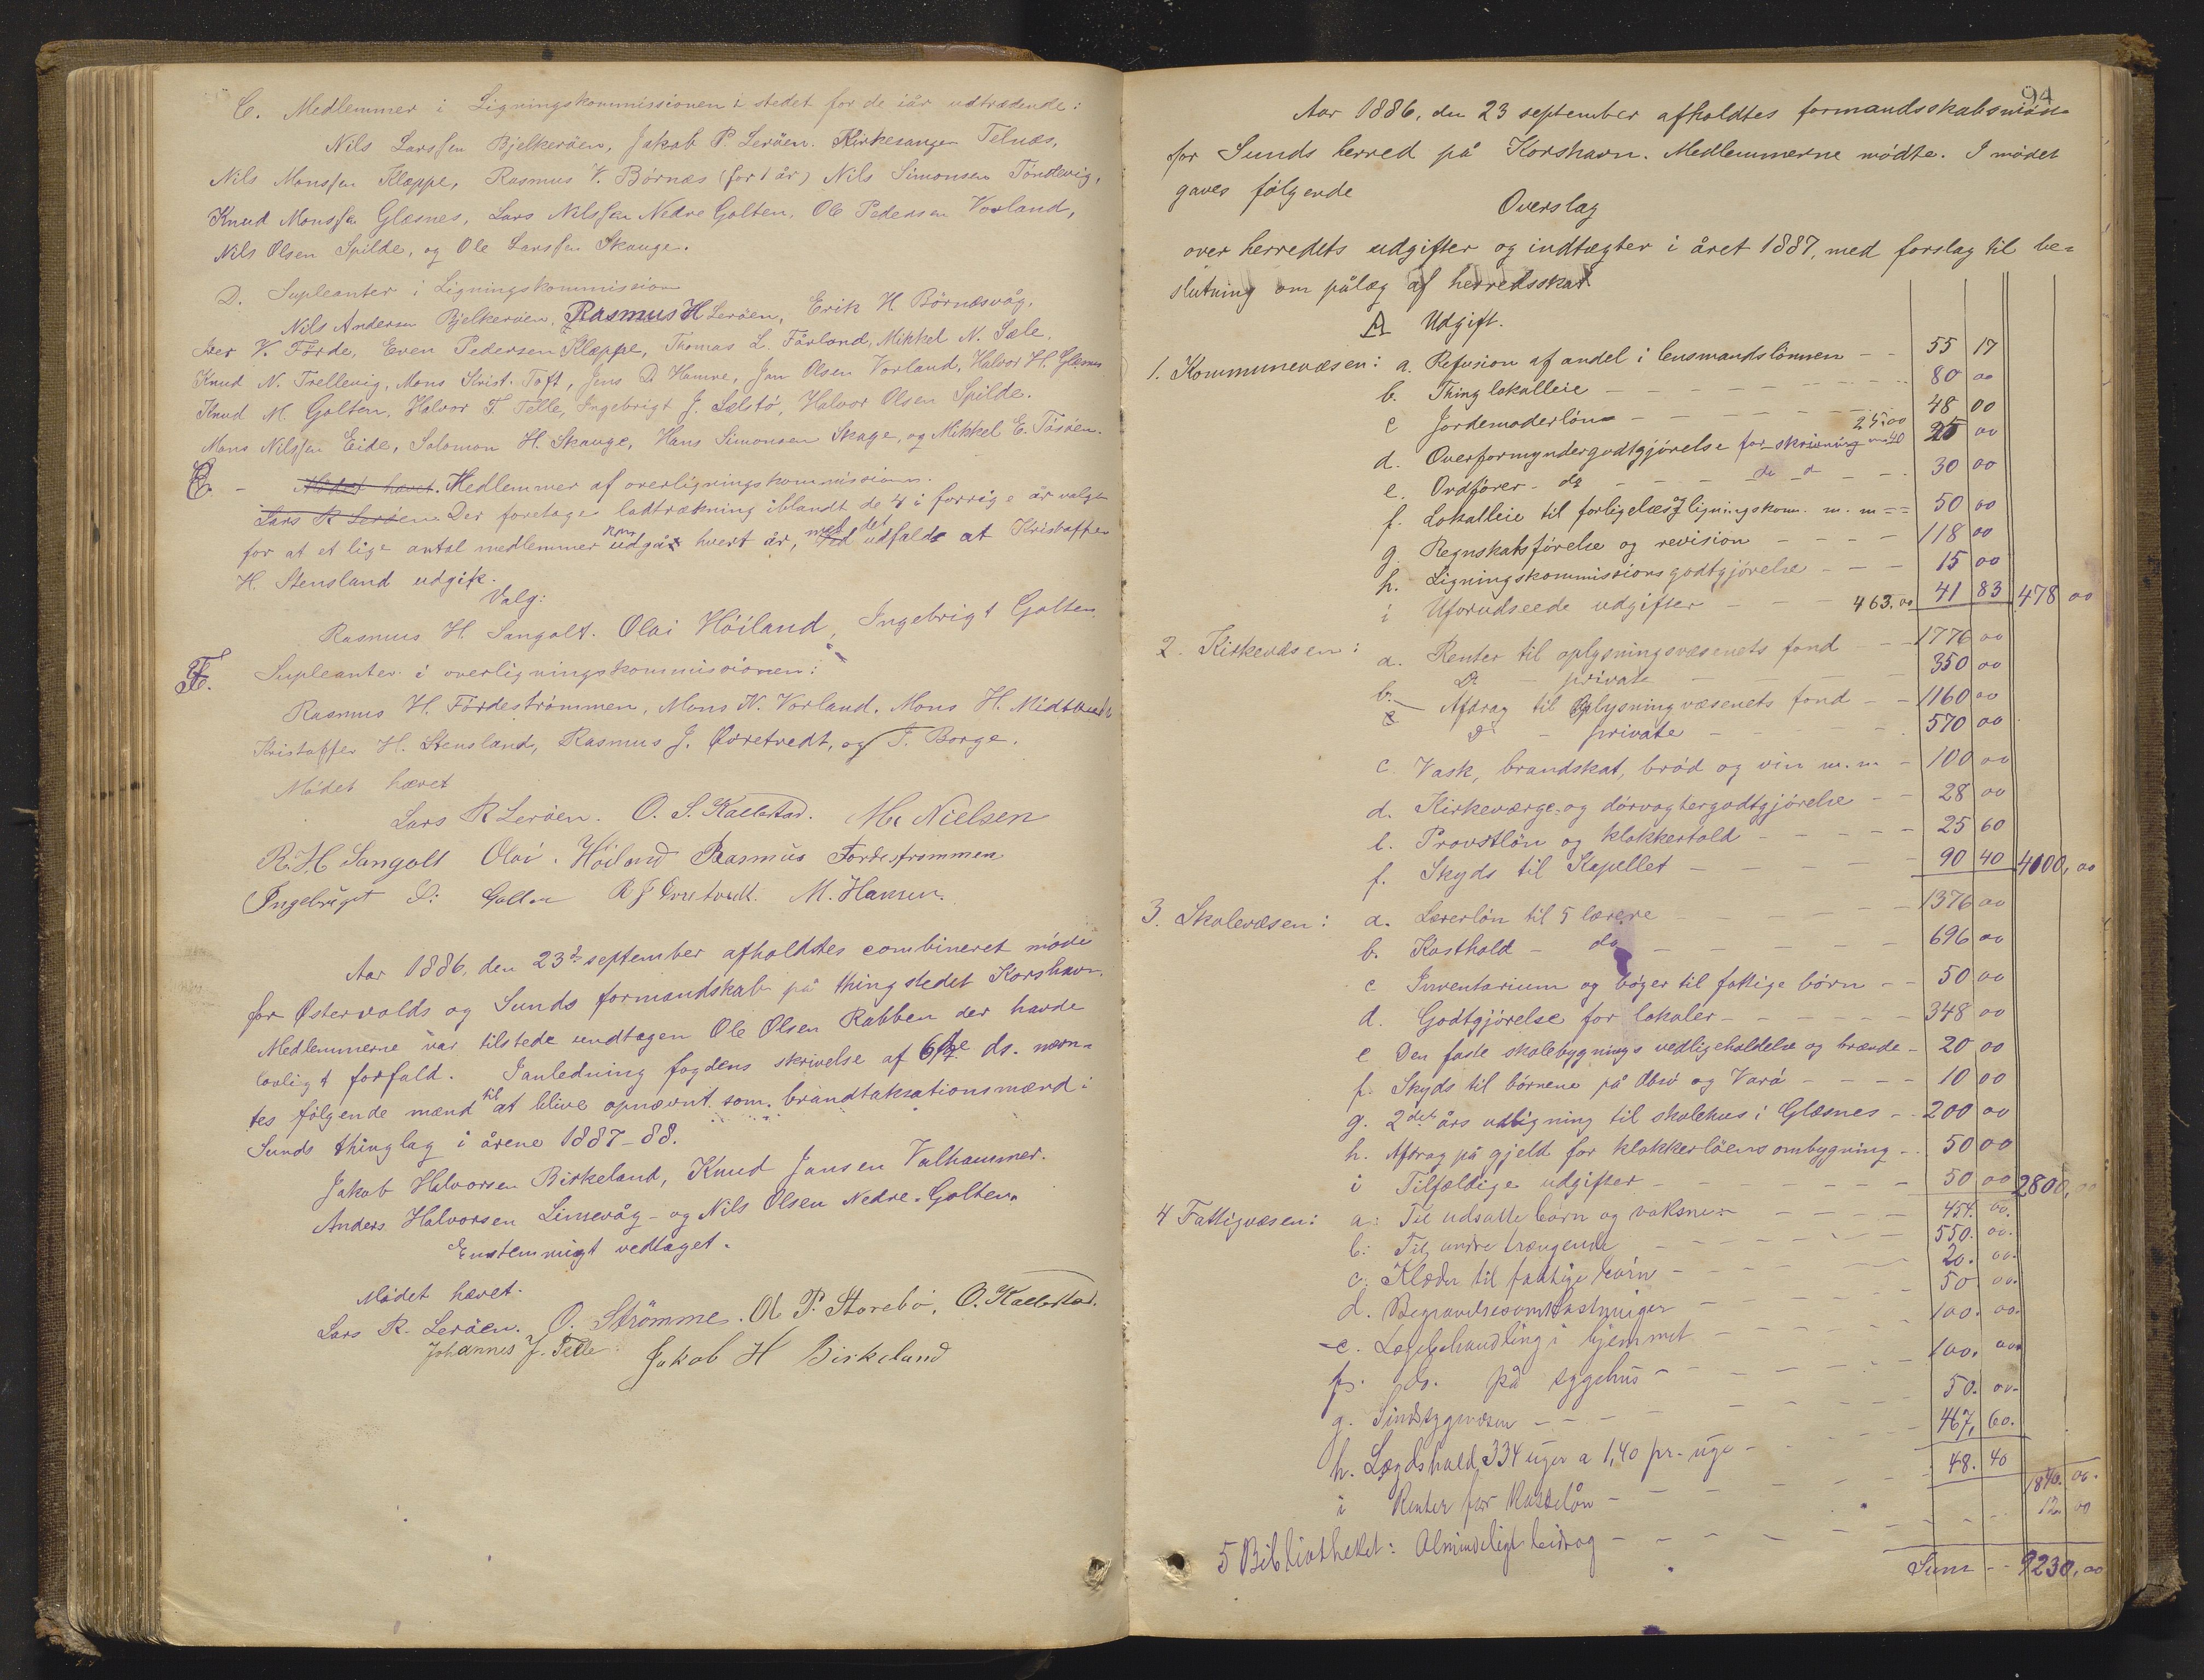 C. Medlemmer i Ligningskommissionen i stedet for de iår udtrædende:
Nils Larssen Bjelkeröen, Jakob P. Leröen. Kirkesanger Telnæs,
Nils Monssen Klæppe, Rasmus V. Börnæs (for 1 år) Nils Simonsen Töndevig,
Knud Monssen Glæsnes, Lars Nilssen Nedre Golten, Ole Pedersen Vorland,
Nils Olsen Spilde, og Ole Larssen Skauge.
D. Supleanter i Ligningskommission
Nils Andersen Bjelkeröen, Rasmus H Leröen, Erik H. Börnæsvåg,
Iver V. Förde, Even Pedersen Klæppe, Thomas L. Fårland, Mikkel N. Sæle,
Knud N. Trellevig, Mons Krist. Toft, Jens D. Hamre, Jan Olsen Vorland, Halvor H. Glæsnes
Knud M. Golten, Halvor T. Telle, Ingebrigt J. Selstö, Halvor Olsen Spilde.
Mons Nilssen Eide, Salomon H. Skauge, Hans Simonsen Skage, og Mikkel E. Tösöen.
E. - Mödet hævet. Medlemmer af overligningskommissionen.
Lars R Leröen Der foretoges lodtrækning iblandt de 4 i forrige år valgte
for at et lige antal medlemmer kan udgå hvert år, med det udfald at Kristoffer
H. Stensland udgik.
Valg:
Rasmus H. Sangolt. Olai Höiland, Ingebrigt Golten.
F. Supleanter i overligningskommissionen:
Rasmus H. Fördeströmmen, Mons N. Vorland, Mons H. Midttvedt
Kristoffer H. Stensland, Rasmus J. Övretvedt, og T. Borge.
Mödet hævet
Lars R Leröen. O. S. Kallestad. Mr Nielsen
R. H. Sangolt Olai. Höiland Rasmus Fördestrømmen
Ingebrigt Golten R J Övretvedt. M. Hansen.
Aar 1886, den 23de september afholdtes combineret möde
for Østervolds og Sunds formandskab på thingstedet Korshavn.
Medlemmerne var tilstede undtagen Ole Olsen Rabben der havde
lovligt forfald. I anledning fogdens skrivelse af 6te ds. nævn-
tes følgende mænd til at blive opnævnt som brandtaksationsmænd i
Sunds thinglag i årene 1887-88.
Jakob Halvorsen Birkeland, Knud Jansen Valhammer.
Anders Halvorsen Limevåg - og Nils Olsen Nedre-Golten.
Enstemmigt vedtaget.
Mödet hævet.
Lars R. Leröen. O. Strömme. Ole P. Storebö. O. Kallestad.
Johannes J. Telle Jakob H Birkeland
94
Aar 1886, den 23 september afholdtes formandsskabsmöde
for Sunds herred på Korshavn. Medlemmerne mödte. I mödet
gaves fölgende
Overslag
over herredets udgifter og indtægter i året 1887, med forslag til be=
slutning om pålæg af herredsskat
A Udgift.
1. Kommunevæsen: a. Refusion af andel i lensmandslönnen - - 55 17
b. Thinglokalleie - - - 80 00
c Jordemoderlön - - - 48 00
d. Overformyndergodtgjörelse for skrivning m 40 25,00 25 00
e. Ordförer- do - - - do d - - 30 00
f. Lokalleie til forligelses & ligningskom. m. m = = 50 00
g Regnskabsförelse og revision - - - - 118 00
h. Ligningskommissions godtgjörelse - - - 15 00
i Uforudseede udgifter - - - 463,00 41 83 478 00
2. Kirkevæsen: a. Renter til oplysningsvæsenets fond - - 1776 00
Do - private - - - 350 00
b. Afdrag til Oplysningvæsenets fond - - 1160 00
Do - private - - - 570 00
c Vask, brandskat, bröd og vin m. m - 100 00
d. Kirkeværge- og dörvogtergodtgjörelse - - 28 00
e. Provstlön og klokkertold - - - - 25 60
f. Skyds til Kapellet - - - - 90 40 4100,00
3. Skolevæsen: a. Lærerlön til 5 lærere - - - 1376 00
b. Kosthold - do - - - - 696 00
c Inventarium og böger til fattige börn - - 50 00
d. Godtgjörelse for lokaler - - - - 348 00
e Den faste skolebygnings vedligeholdelse og brænde - 20 00
f. Skyds til börnene på Obsö og Varå - - - - 10 00
g. 2det års udligning til skolehus i Glæsnes - - 200 00
h. Afdrag på gjeld for klokkerlöens ombygning - - 50 00
i Tilfældige udgifter - - - - 50 00 2800,00
4 Fattigvæsen: a: Til udsatte börn og voksne - - - - 454. 00.
b: Til andre trængende - - - 550. 00.
c: Klæder til fattige börn - - - 20. 00.
d. Begravelsesomkostninger - - - 50 00.
e. Lægebehandling i hjemmet - - - 100. 00.
f. do. på sygehus - - - 100. 00.
g. Sindssygevæsen - - - 50. 00.
h. Lægdshold, 334 uger a 1,40 pr. uge - - - 467, 60.
i Renter for Kasselån - - - 48. 40 1840. 00.
5 Bibliotheket: Almindeligt bidrag - - - 12. 00
Sum - - 9230,00